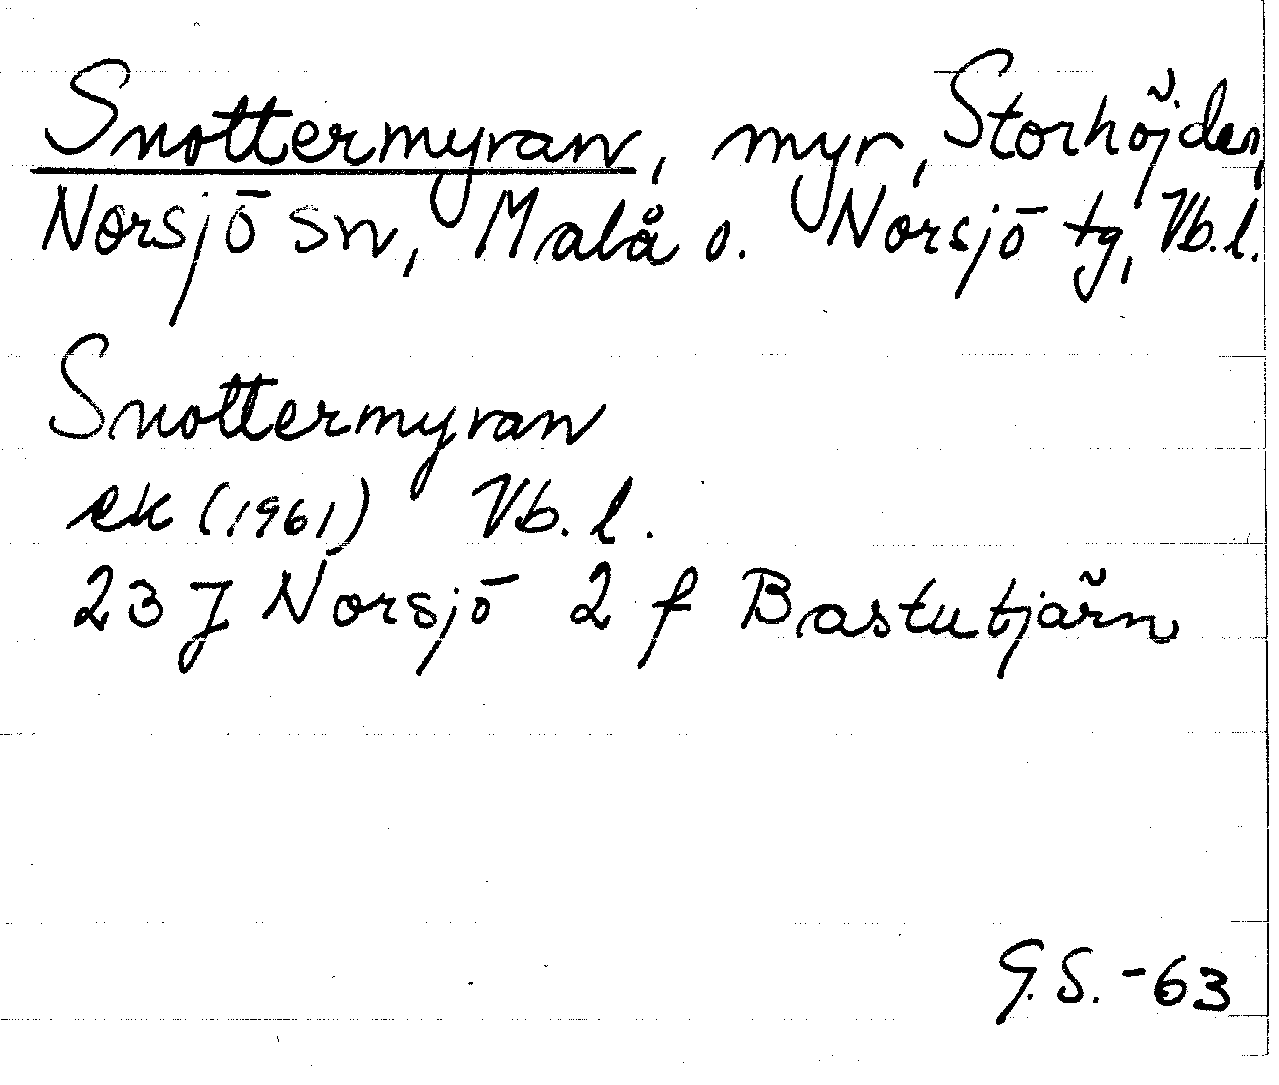 Snottermyran, myr, Storhöjden,
Norsjö sn, Malå o. Norsjö tg, Vb.l.
Snottermyran
ek (1961) Vb. l.
23 J Norsjö 2 f Bastutjärn
G.S. -63